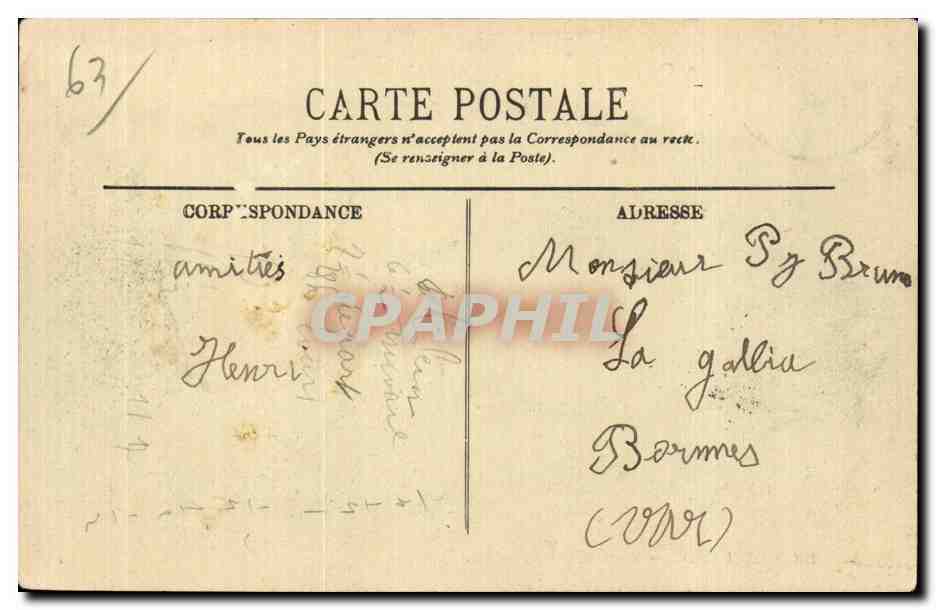 63/
CARTE POSTALE
Tous les Pays étrangers n'acceptent pas la Correspondance au recto.
(Se renseigner à la Poste).
CORRESPONDANCE
amitiés
Henri
ADRESSE
Monsieur Py Bruno
La gallia
Bormes
(VAR)
CPAPHIL